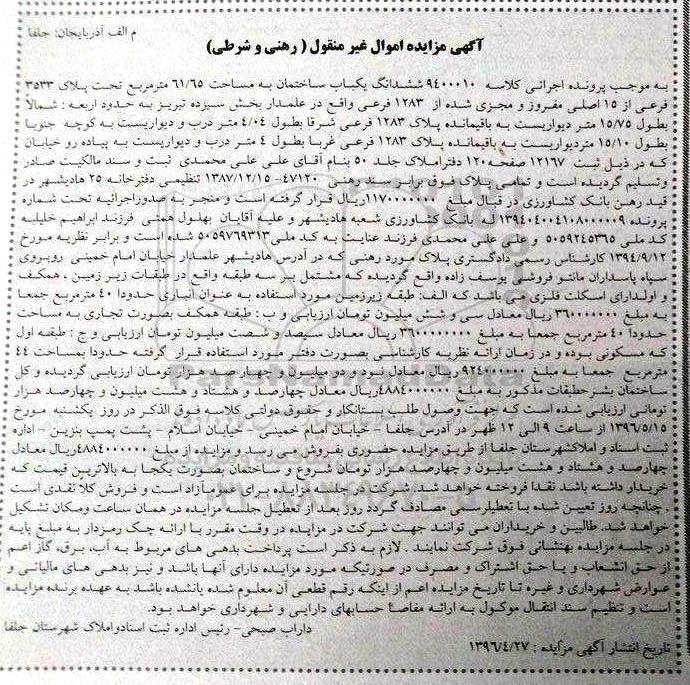 م الف آذربایجان: جلفا
آگهی مزایده اموال غیر منقول ( رهنی و شرطی)
به موجب پرونده اجرائی کلاسه ۹۴۰۰۰۱۰ ششدانگ یکباب ساختمان به مساحت ۶۱/۶۵ مترمربع تحت پلاک ۳۵۳۳
فرعی از ۱۵ اصلی مفروز و مجزی شده از ۱۲۸۳ فرعی واقع در علمدار بخش سیزده تبریز به حدود اربعه : شمالاً
بطول ۱۵/۷۵ متر دیواریست به باقیمانده پلاک ۱۲۸۳ فرعی شرقا بطول ۴/۰۴ متر درب و دیواریست به کوچه جنوبا
بطول ۱۵/۱۰ متردیواریست به باقیمانده پلاک ۱۲۸۳ فرعی غربا بطول ۴ متر درب و دیواریست به پیاده رو خیابان
که در ذیل ثبت ۱۲۱۶۷ صفحه۱۲۰ دفتراملاک جلد ۵۰ بنام آقای علی علی محمدی ثبت و سند مالکیت صادر
وتسلیم گردیده است و تمامی پلاک فوق برابر سند رهنی ۴۷۱۲۰- ۱۳۸۷/۱۲/۱۵ تنظیمی دفترخانه ۲۵ هادیشهر در
قید رهن بانک کشاورزی در قبال مبلغ ۱۱۷۰۰۰۰۰۰۰ریال قرار گرفته است و منجر به صدوراجرائیه تحت شماره
پرونده ۱۳۹۴۰۴۰۰۴۱۰۸۰۰۰۰۰۹ له بانک کشاورزی شعبه هادیشهر و علیه آقایان بهلول همتی فرزند ابراهیم خلیل
کد ملی ۵۰۵۹۲۴۵۳۶۵ و علی علی محمدی فرزند عنایت به کد ملی۵۰۵۹۷۶۹۳۱۳ شده است و برابر نظریه مورخ
۱۳۹۴/۹/۱۲ کارشناس رسمی دادگستری پلاک مورد رهنی که در آدرس هادیشهر علمدار خیابان امام خمینی روبروی
سپاه پاسداران مانتو فروشی یوسف زاده واقع گردیده که مشتمل بر سه طبقه واقع در طبقات زیر زمین ، همکف
و اولدارای اسکلت فلزی می باشد که الف: طبقه زیرزمین مورد استفاده به عنوان انباری حدودا ۴۰ مترمربع جمعا
به مبلغ ۳۶۰۰۰۰۰۰۰ ریال معادل سی و شش میلیون تومان ارزیابی و ب : طبقه همکف بصورت تجاری به مساحت
حدودا ۴۰ مترمربع جمعا به مبلغ ۳۶۰۰۰۰۰۰۰۰ ریال معادل سیصد و شصت میلیون تومان ارزیابی و ج : طبقه اول
که مسکونی بوده و در زمان ارائه نظریه کارشناسی بصورت دفتر مورد استفاده قرار گرفته حدودا بمساحت ۴۴
مترمربع جمعا به مبلغ ۹۲۴۰۰۰۰۰۰ ریال معادل نودو دو میلیون و چهارصد هزار تومان ارزیابی گردیده و کل
ساختمان بشرحطبقات مذکور به مبلغ ۴۸۸۴۰۰۰۰۰۰ریال معادل چهارصد و هشتاد و هشت میلیون و چهارصد هزار
تومانی ارزیابی شده است که جهت وصول طلب بستانکار و حقوق دولتی کلاسه فوق الذکر در روز یکشنبه مورخ
۱۳۹۶/۵/۱۵ از ساعت ۹ الی ۱۲ ظهر در آدرس جلفا - خیابان امام خمینی - خیابان اسلام - پشت پمپ بنزین - اداره
ثبت اسناد و املاکشهرستان جلفا از طریق مزایده حضوری بفروش می رسد و مزایده از مبلغ ۴۸۸۴۰۰۰۰۰۰ریال معادل
چهارصد و هشتاد و هشت میلیون و چهارصد هزار تومان شروع و ساختمان بصورت یکجا به بالاترین قیمت که
خریدار داشته باشد نقدا فروخته خواهد شد. شرکت در جلسه مزایده برای عموم آزاد است و فروش کلا نقدی است
. چنانچه روز تعیین شده با تعطیلرسمی مصادف گردد روز بعد از تعطیل جلسه مزایده در همان ساعت ومکان تشکیل
خواهد شد. طالبین و خریداران می توانند جهت شرکت در مزایده در وقت مقرر با ارائه چک رمزدار به مبلغ پایه
در جلسه مزایده بهنشانی فوق شرکت نمایند . لازم به ذکر است پرداخت بدهی های مربوط به آب، برق، گاز اعم
از حق انشعاب و یا حق اشتراک و مصرف در صورتیکه مورد مزایده دارای آنها باشد و نیز بدهی های مالیاتی و
عوارض شهرداری و غیره تا تاریخ مزایده اعم از اینکه رقم قطعی آن معلوم شده یانشده باشد به عهده برنده مزایده
است و تنظیم سند انتقال موکول به ارائه مفاصا حسابهای دارایی و شهرداری خواهد بود.
داراب صبحی- رئیس اداره ثبت اسنادواملاک شهرستان جلفا
تاریخ انتشار آگهی مزایده : ۱۳۹۶/۴/۲۷
ParsNamadData